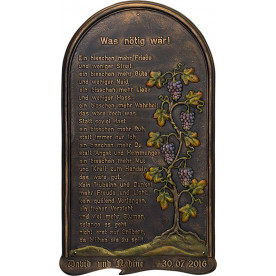 Was nötig wär!
Ein bisschen mehr Friede
Und weniger Streit
Ein bisschen mehr Güte
Und weniger Neid
Ein bisschen mehr Liebe
Und weniger Hass
Ein bisschen mehr Wahrheit
das wäre doch was
Statt soviel Hast
Ein bisschen mehr Ruh
statt immer nur Ich
Ein bisschen mehr Du
statt Angst und Hemmungen
Ein bisschen mehr Mut
und Kraft zum Handeln
das wäre gut
Kein Trübsinn und Dunkel
mehr Freude und Licht
kein quälend Verlangen
ein froher Verzicht
und viel mehr Blumen
solange es geht
nicht erst auf Gräbern
da blühn sie zu spät
David und Nadine 30.07.2016